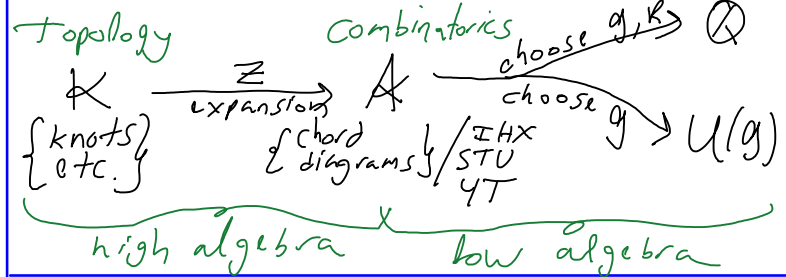 Topology Combinatorics
K Z expansion A choose g, R Q
choose g U(g)
{knots etc.} {chord diagrams}/IHX STU 4T
high algebra low algebra